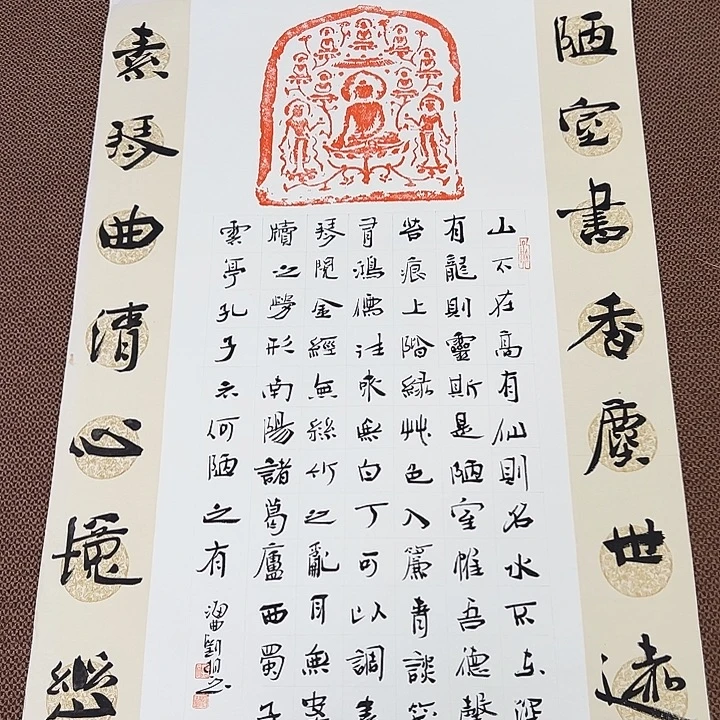 陋室書香塵世遠
山不在高有仙則名水不在深
有龍則靈斯是陋室惟吾德馨
苔痕上階綠艸色入簾青談笑
有鴻儒往來無白丁可以調素
琴閱金經無絲竹之亂耳無案
牘之勞形南陽諸葛廬西蜀子
雲亭孔子云何陋之有
劉
素琴曲清心境